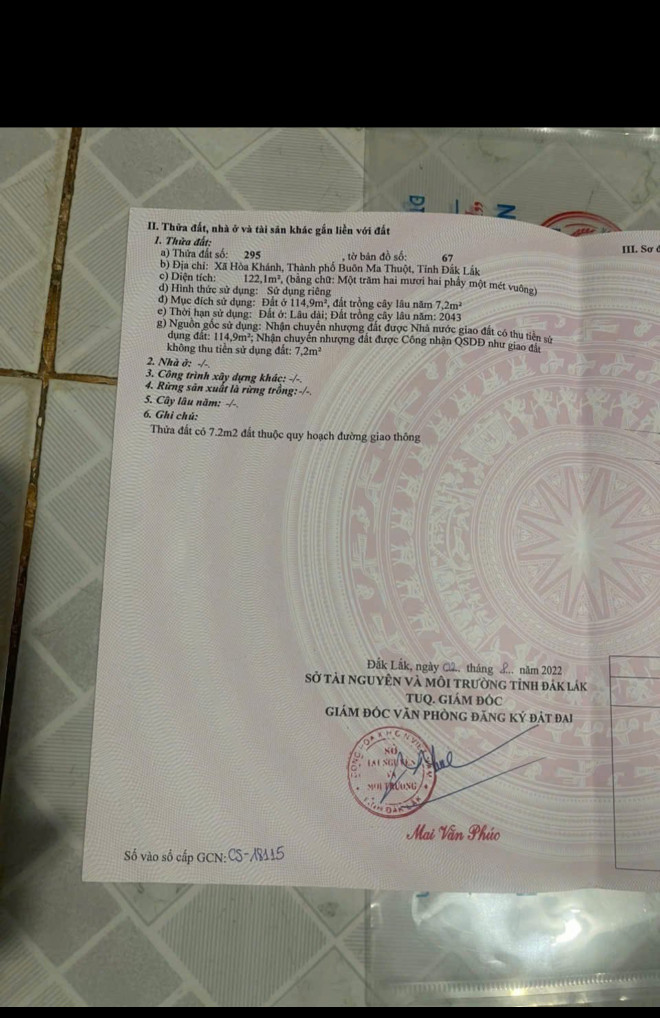 II. Thửa đất, nhà ở và tài sản khác gắn liền với đất
1. Thửa đất:
a) Thửa đất số: 295 , tờ bản đồ số: 67
b) Địa chỉ: Xã Hòa Khánh, Thành phố Buôn Ma Thuột, Tỉnh Đắk Lắk
c) Diện tích: 122,1m², (bằng chữ: Một trăm hai mươi hai phẩy một mét vuông)
d) Hình thức sử dụng: Sử dụng riêng
đ) Mục đích sử dụng: Đất ở 114,9m², đất trồng cây lâu năm 7,2m²
e) Thời hạn sử dụng: Đất ở: Lâu dài; Đất trồng cây lâu năm: 2043
g) Nguồn gốc sử dụng: Nhận chuyển nhượng đất được Nhà nước giao đất có thu tiền sử
dụng đất: 114,9m²; Nhận chuyển nhượng đất được Công nhận QSDĐ như giao đất
không thu tiền sử dụng đất: 7,2m²
2. Nhà ở: -/-.
3. Công trình xây dựng khác: -/-.
4. Rừng sản xuất là rừng trồng: -/-.
5. Cây lâu năm: -/-.
6. Ghi chú:
Thửa đất có 7.2m2 đất thuộc quy hoạch đường giao thông
III. Sơ
Đắk Lắk, ngày 02 tháng 8 năm 2022
SỞ TÀI NGUYÊN VÀ MÔI TRƯỜNG TỈNH ĐẮK LẮK
TUQ. GIÁM ĐỐC
GIÁM ĐỐC VĂN PHÒNG ĐĂNG KÝ ĐẤT ĐAI
SỞ
TÀI NGUYÊN
VÀ
MÔI TRƯỜNG
TỈNH ĐẮK LẮK
Mai Văn Phúc
Số vào sổ cấp GCN: CS-18115